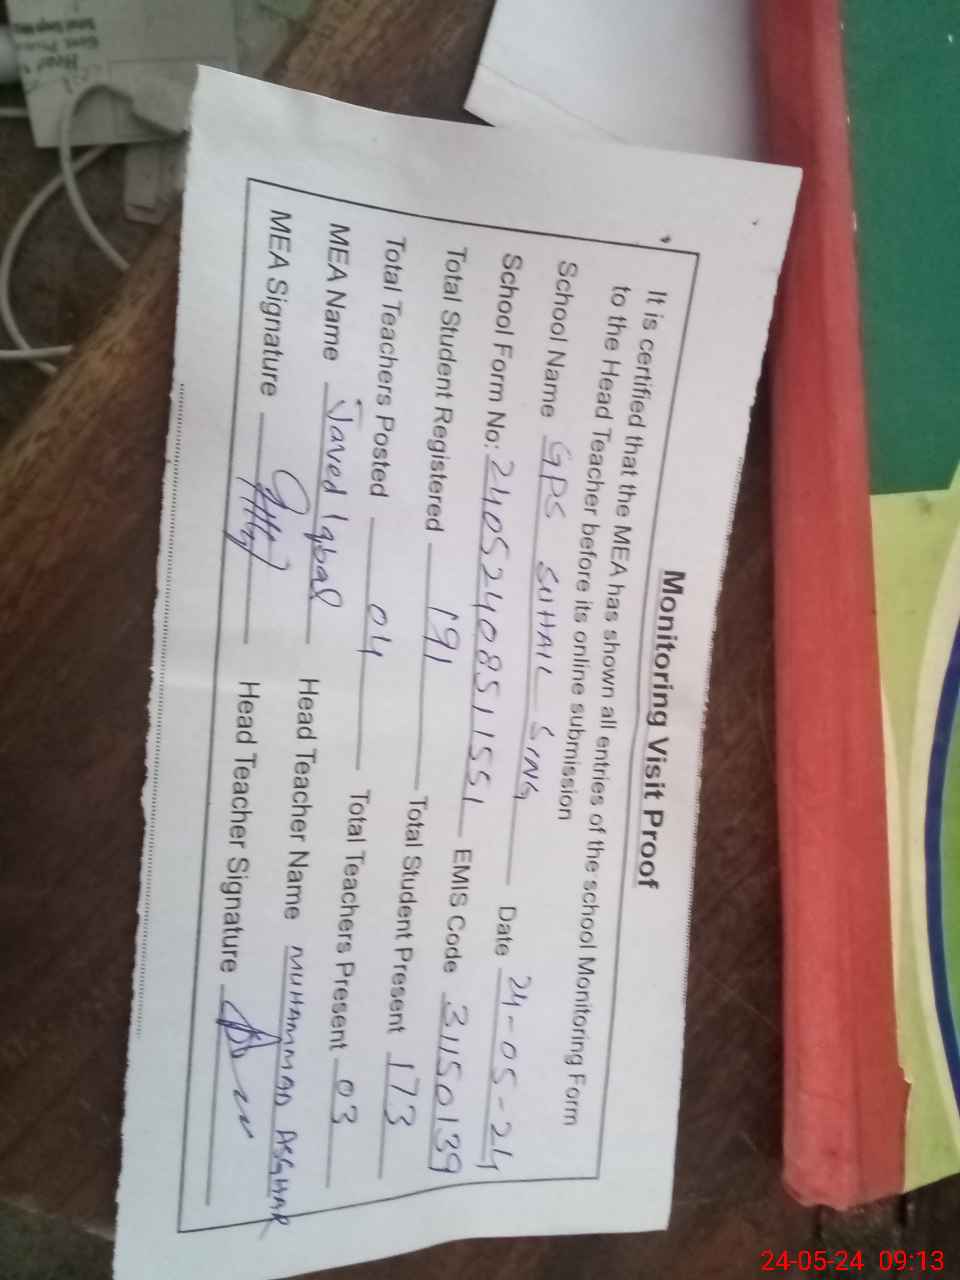 Monitoring Visit Proof
It is certified that the MEA has shown all entries of the school Monitoring Form
to the Head Teacher before its online submission
School Name GPS SUHAIL SING Date 24-05-24
School Form No: 24052408511551 EMIS Code 31150139
Total Student Registered 191 Total Student Present 173
Total Teachers Posted 04 Total Teachers Present 03
MEA Name Javed Iqbal Head Teacher Name MUHAMMAD ASGHAR
MEA Signature Head Teacher Signature
24-05-24 09:13